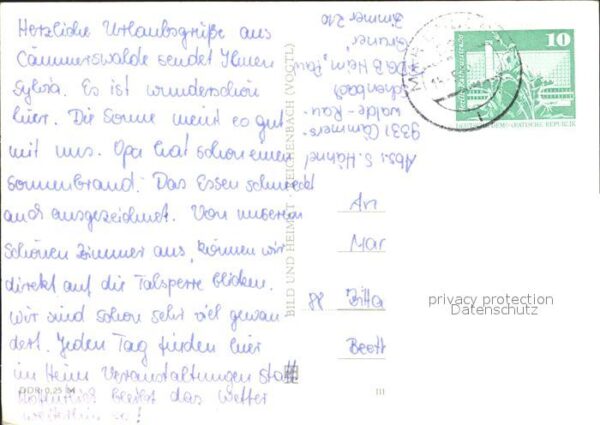 Herzliche Urlaubsgrüße aus
Cämmerswalde sendet Ihnen
Sylvia. Es ist wunderschön
hier. Die Sonne meint es gut
mit uns. Opa hat schon einen
Sonnenbrand. Das Essen schmeckt
auch ausgezeichnet. Von unserem
schönen Zimmer aus, können wir
direkt auf die Talsperre blicken.
Wir sind schon sehr viel gewan
dert. Jeden Tag finden hier
im Heim Veranstaltungen statt
Hoffentlich bleibt das Wetter
weiterhin so!
DDR 0,25 M
BILD UND HEIMAT · REICHENBACH (VOGTL)
Abs.: S. Hähnel
9331 Cämmers-
walde-Rau-
schenbach
FDGB Heim „Paul
Gruner"
Zimmer 210
10
DEUTSCHE DEMOKRATISCHE REPUBLIK
An
Mar
Zitta
Beeth
privacy protection
Datenschutz